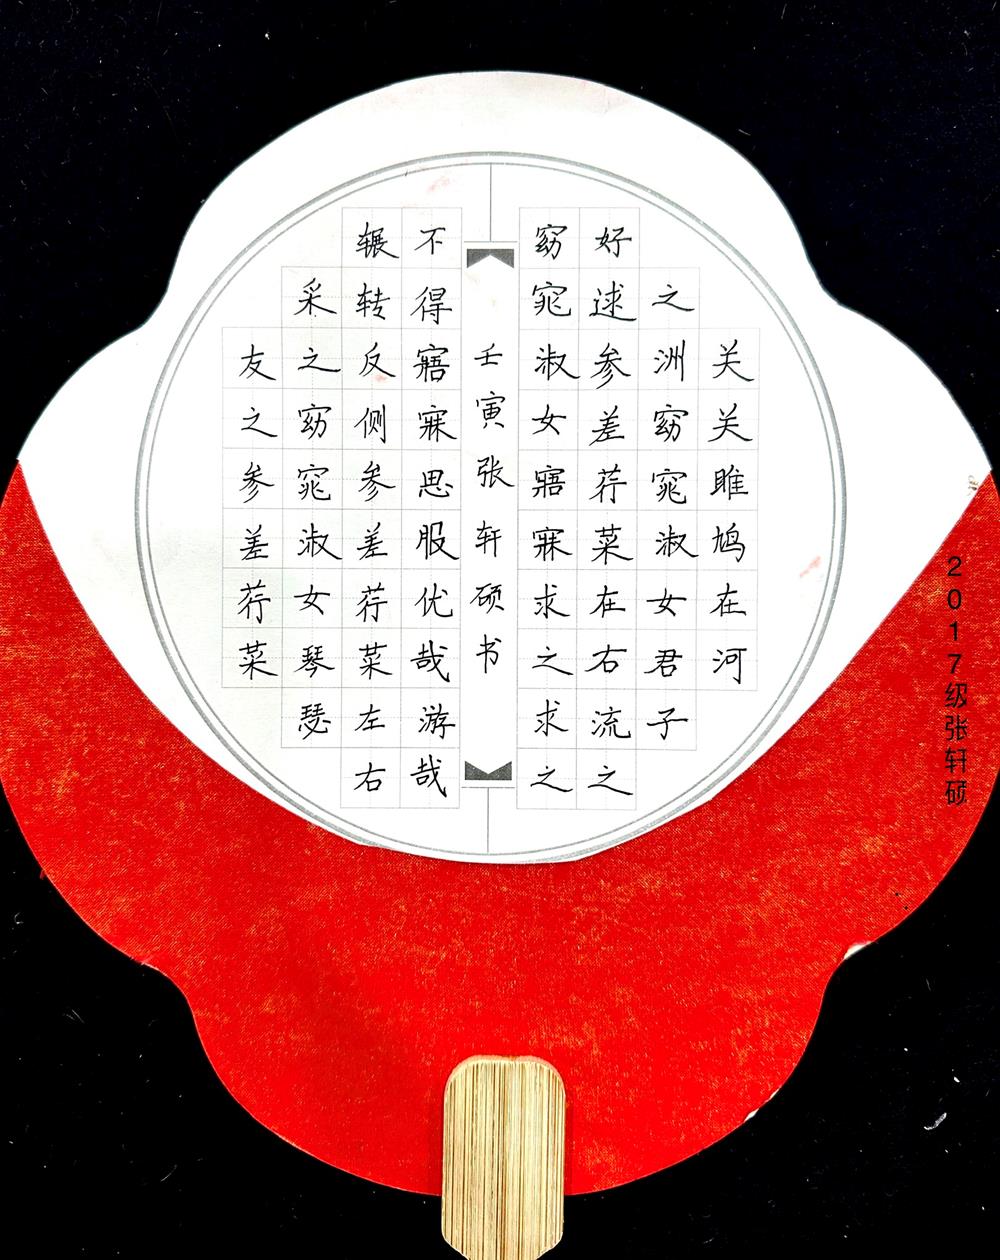 关关雎鸠在河
之洲窈窕淑女君子
好逑参差荇菜在右流之
窈窕淑女寤寐求之求之
壬寅张轩硕书
不得寤寐思服优哉游哉
辗转反侧参差荇菜左右
采之窈窕淑女琴瑟
友之参差荇菜
2017级张轩硕